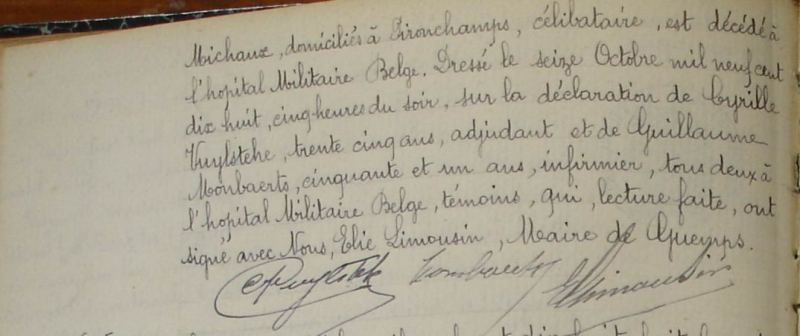 Michaux, domiciliés à Pironchamps, célibataire, est décédé à
l'hopital Militaire Belge. Dressé le seize Octobre mil neuf cent
dix huit, cinq heures du soir, sur la déclaration de Cyrille
Vuylsteke, trente cinq ans, adjudant et de Guillaume
Monbaerts, cinquante et un ans, infirmier, tous deux à
l'hopital Militaire Belge, témoins, qui, lecture faite, ont
signé avec Nous, Elie Limousin, Maire de Guemps.
ELimousin